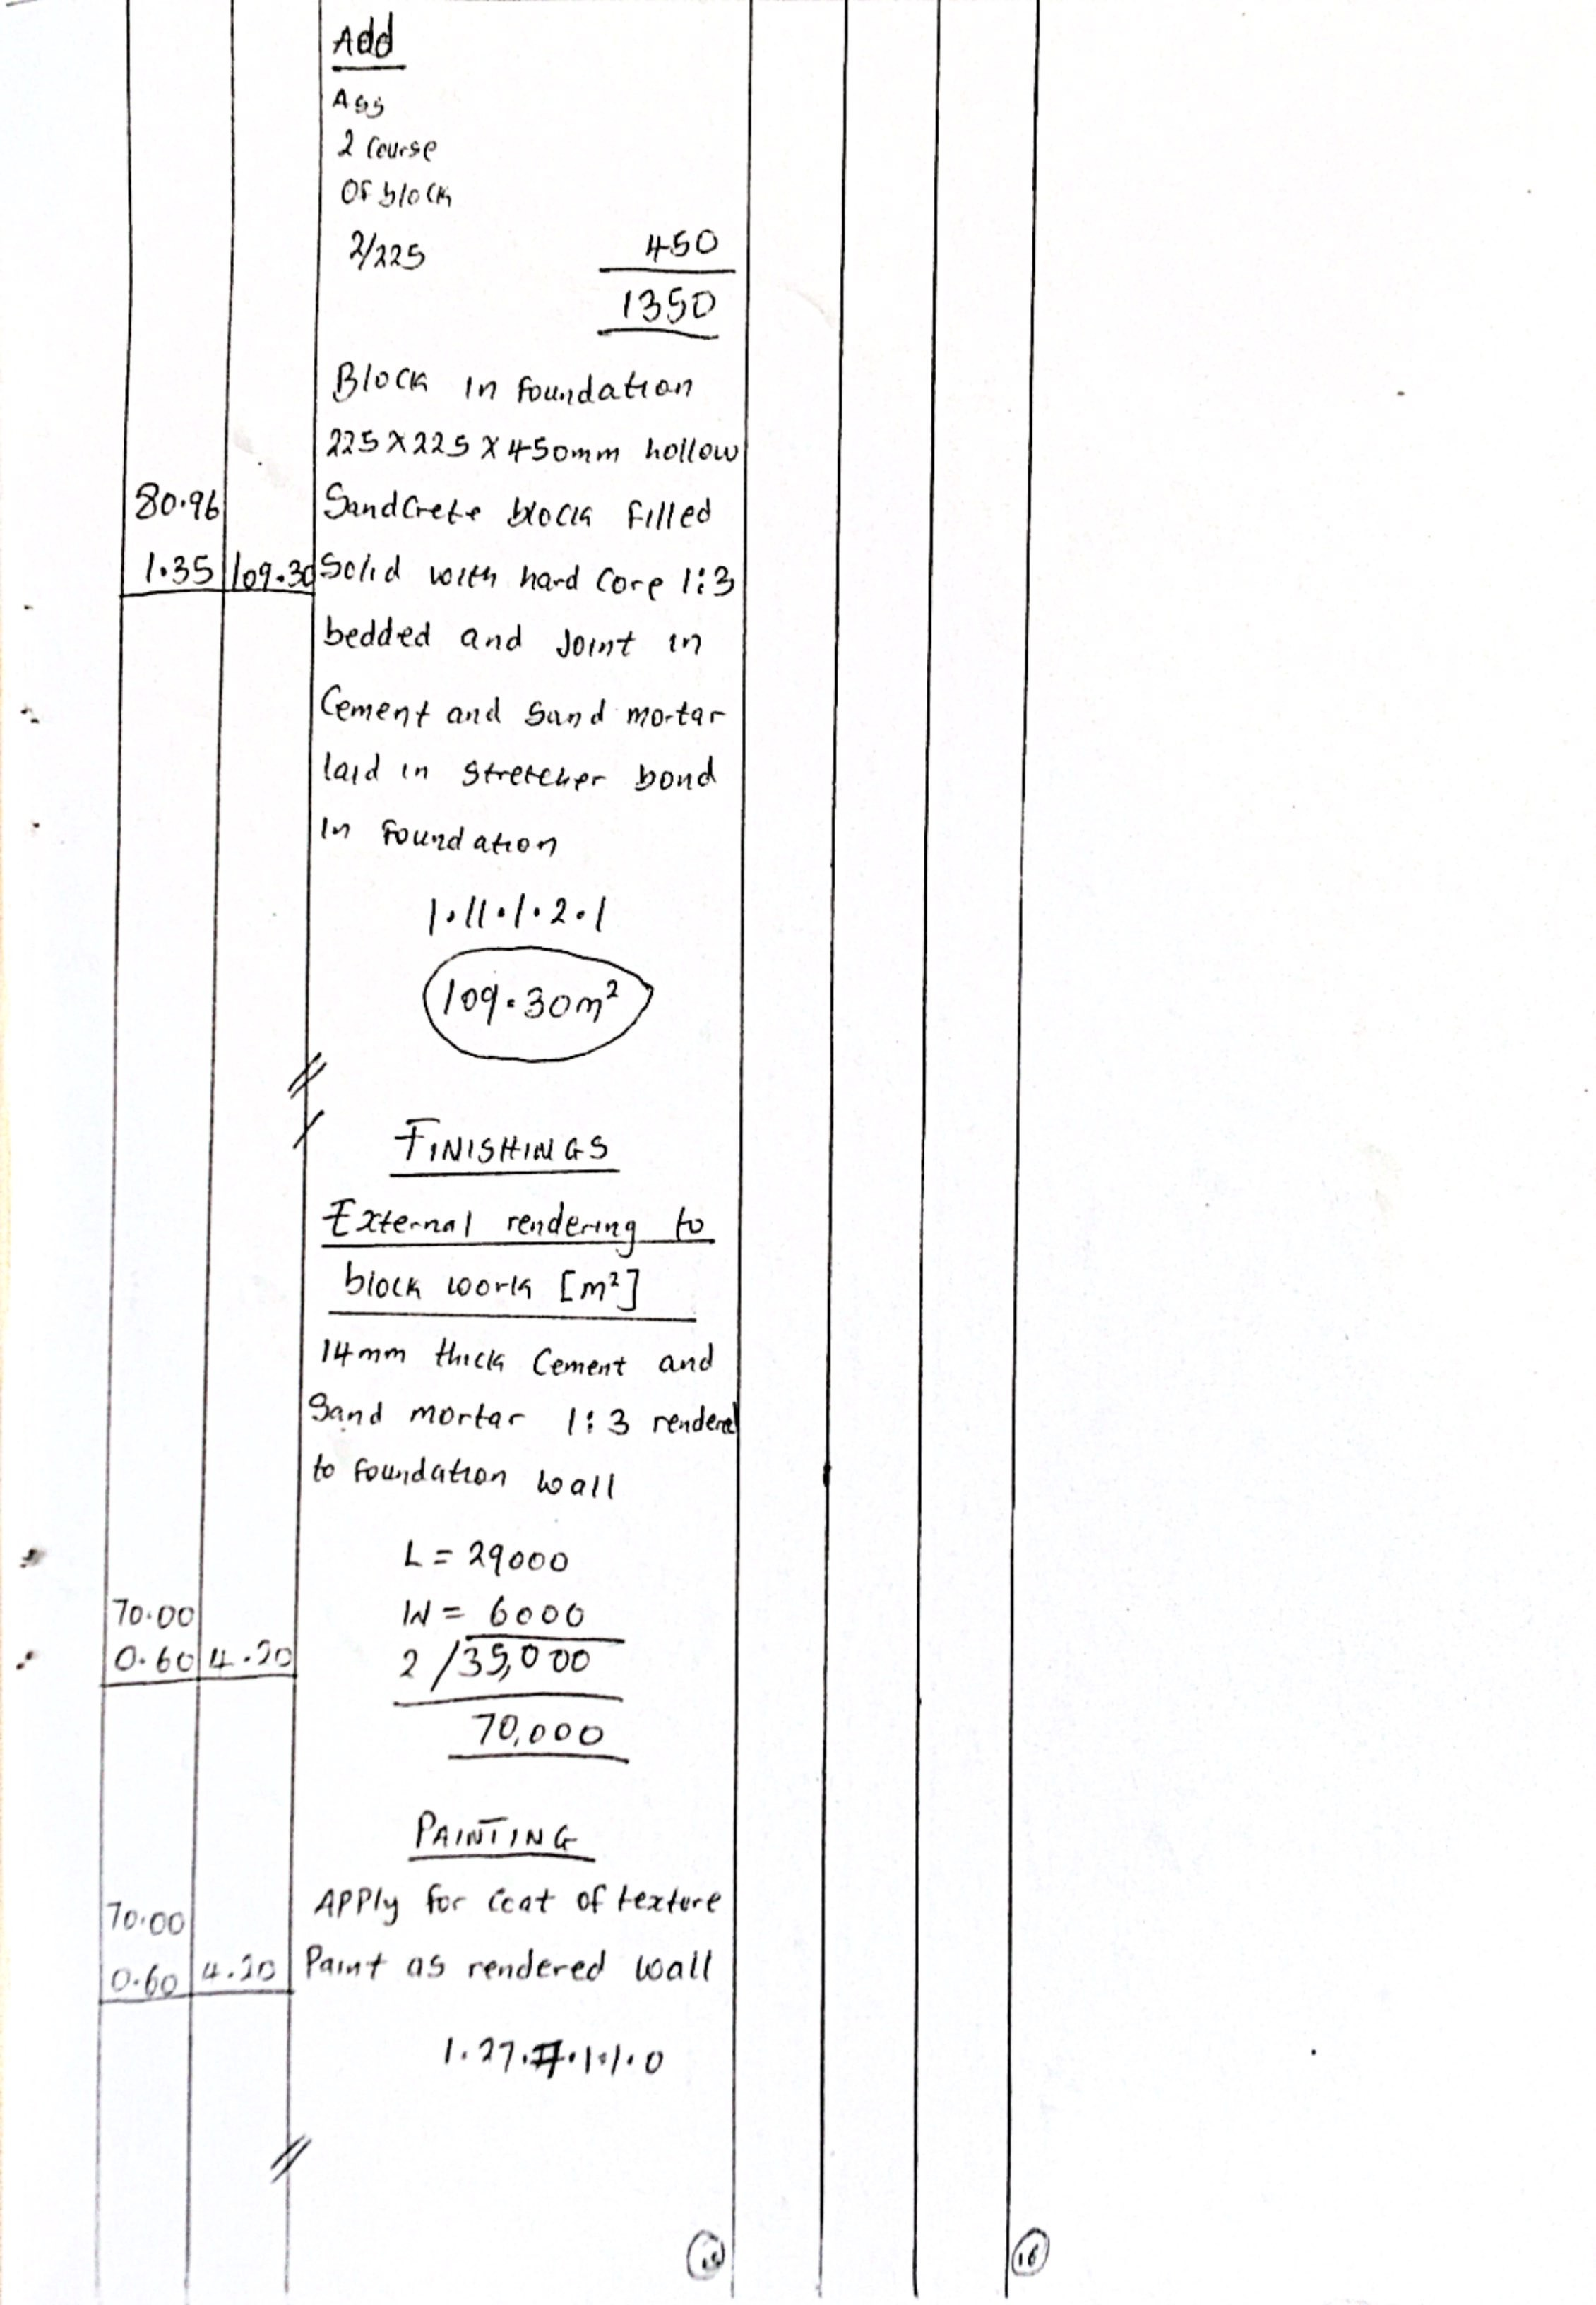 Add
Ass
2 Course
Of block
2/225 450
1350
Block in foundation
225 X 225 X 450mm hollow
80.96 Sandcrete block filled
1.35 109.30 Solid with hard Core 1:3
bedded and Joint in
Cement and Sand mortar
laid in stretcher bond
In foundation
1.11.1.2.1
109.30m²
FINISHINGS
External rendering to
block work [m²]
14mm thick Cement and
Sand mortar 1:3 rendered
to foundation wall
L = 29000
70.00 W = 6000
0.60 4.20 2/35,000
70,000
PAINTING
70.00 APPly for Coat of texture
0.60 4.20 Paint as rendered wall
1.27. .1.1.0
15 16